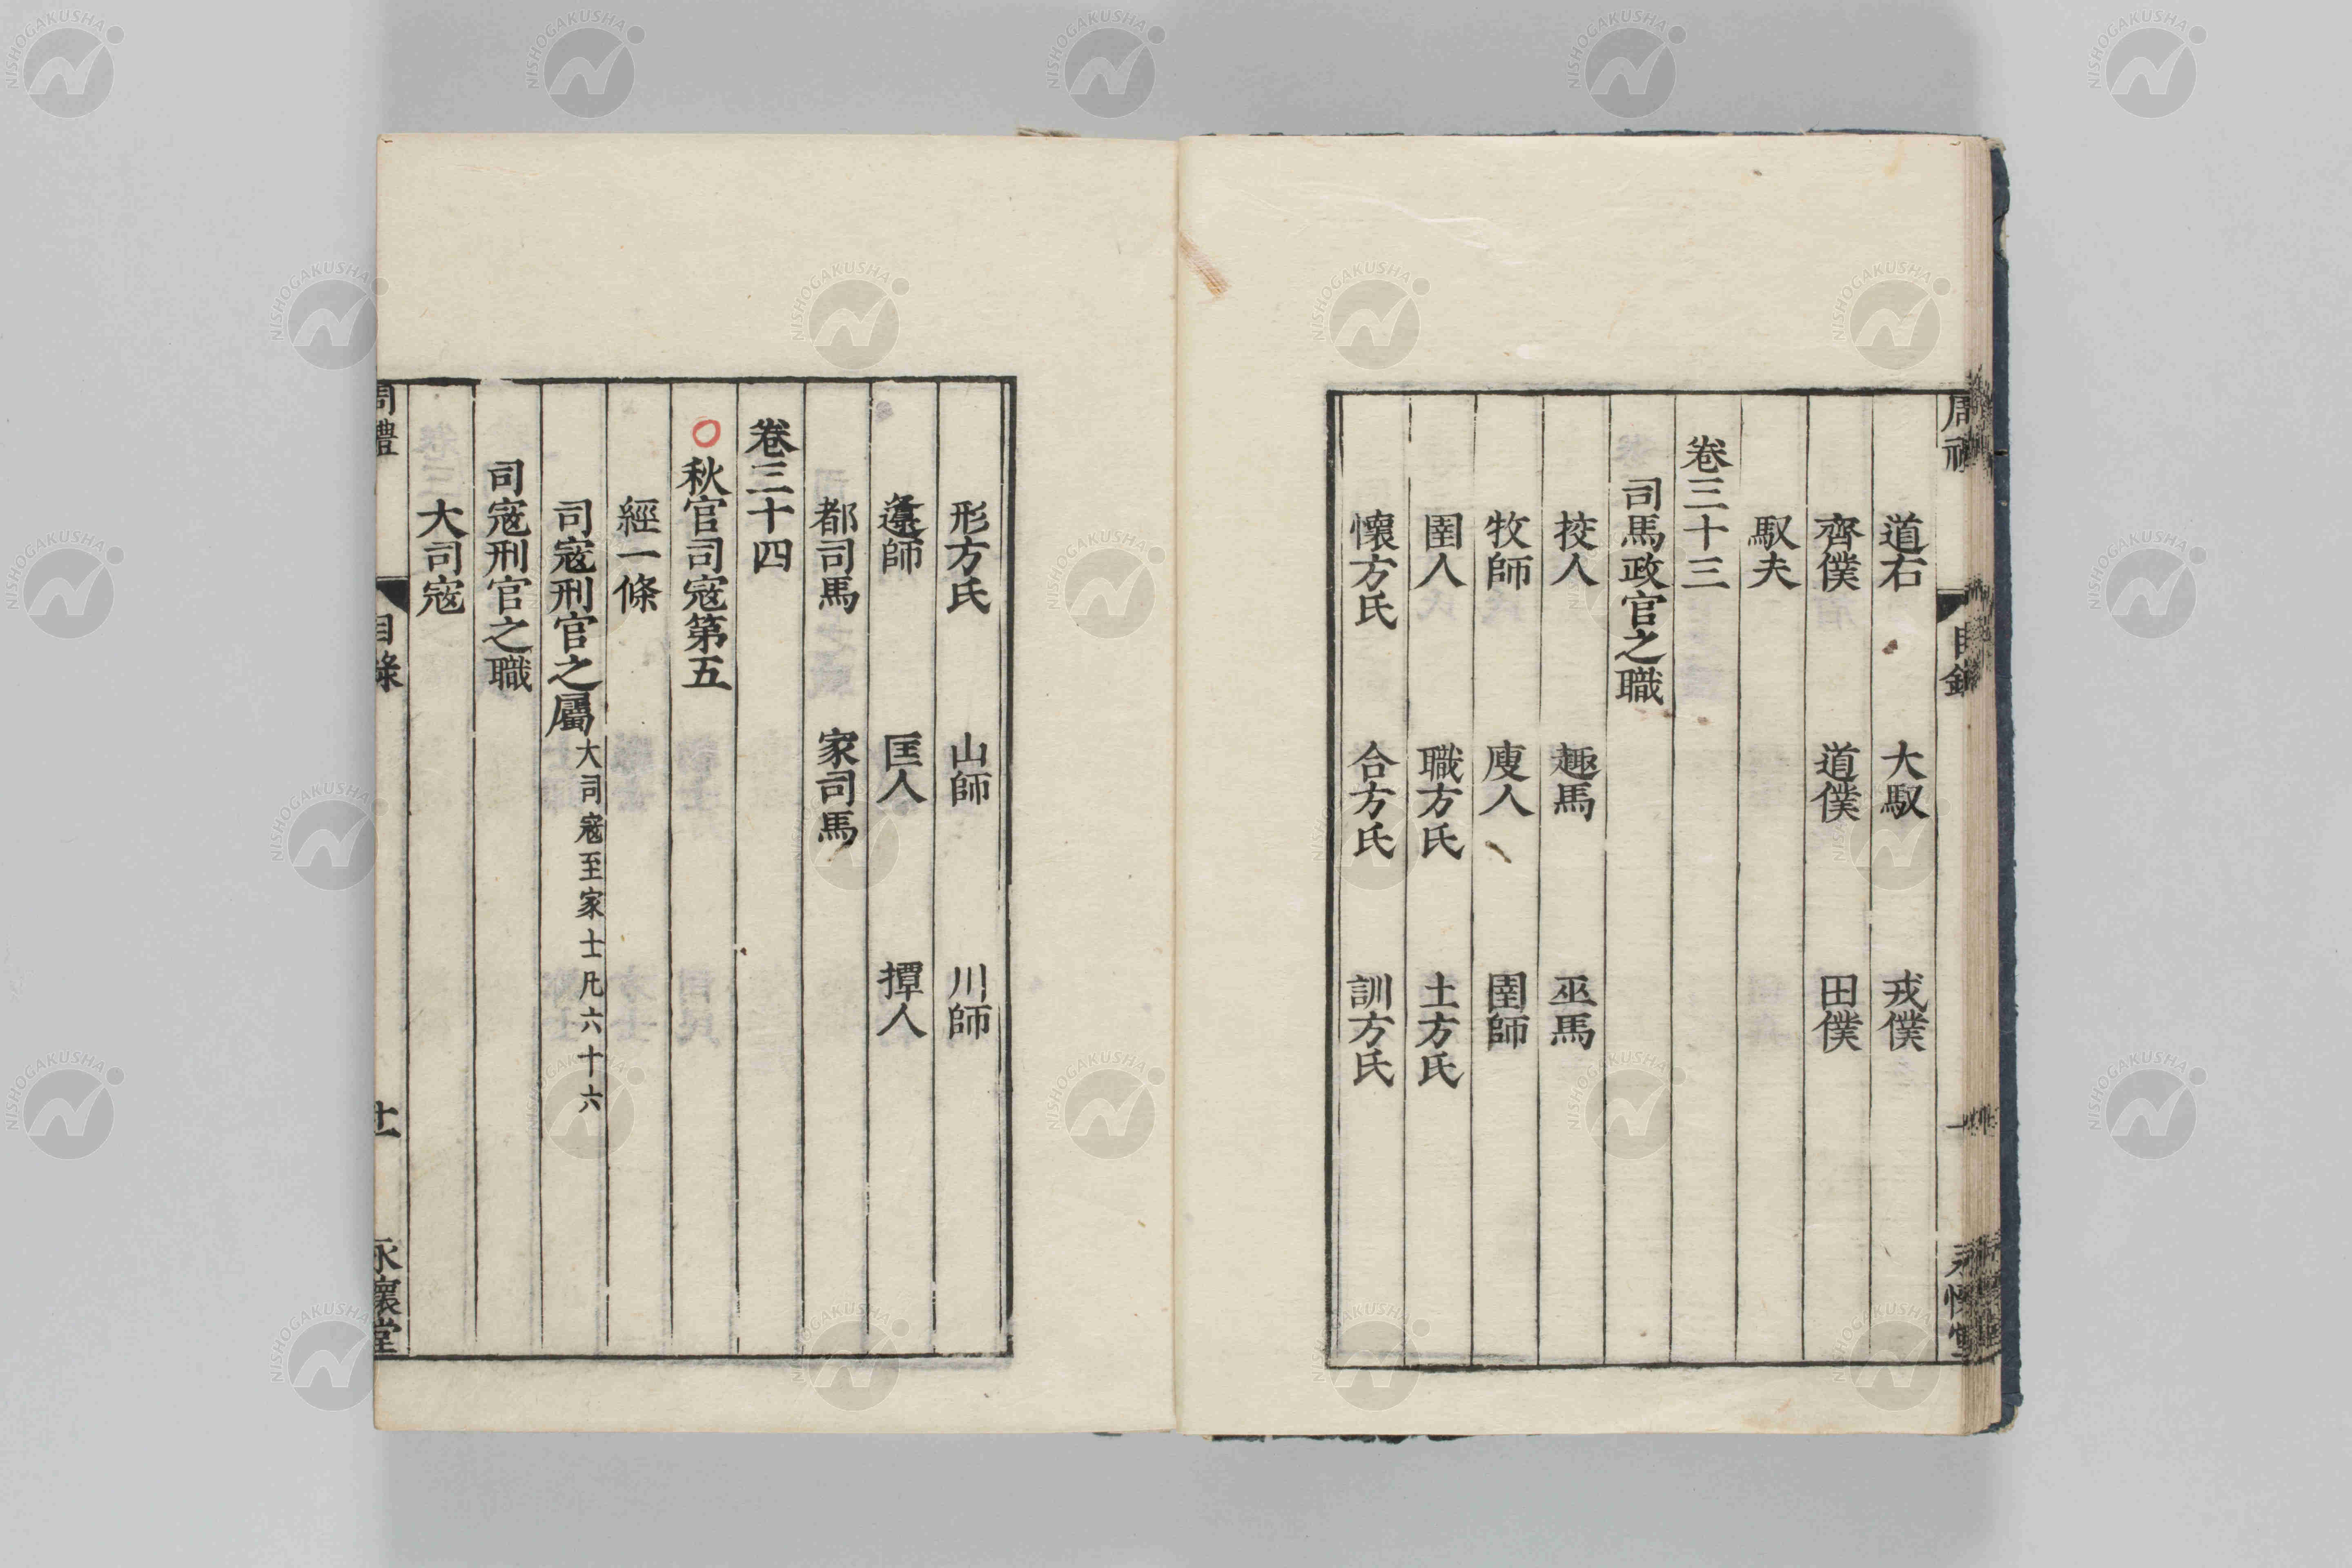 道右 大馭 戎僕
齊僕 道僕 田僕
馭夫
卷三十三
司馬政官之職
挍人 趣馬 巫馬
牧師 廋人 圉師
圉人 職方氏 土方氏
懷方氏 合方氏 訓方氏
形方氏 山師 川師
邍師 匡人 撢人
都司馬 家司馬
卷三十四
秋官司寇第五
經一條
司寇刑官之屬 大司寇至家士凡六十六
司寇刑官之職
大司寇
周禮 目錄 十一 永懷堂
NISHOGAKUSHA